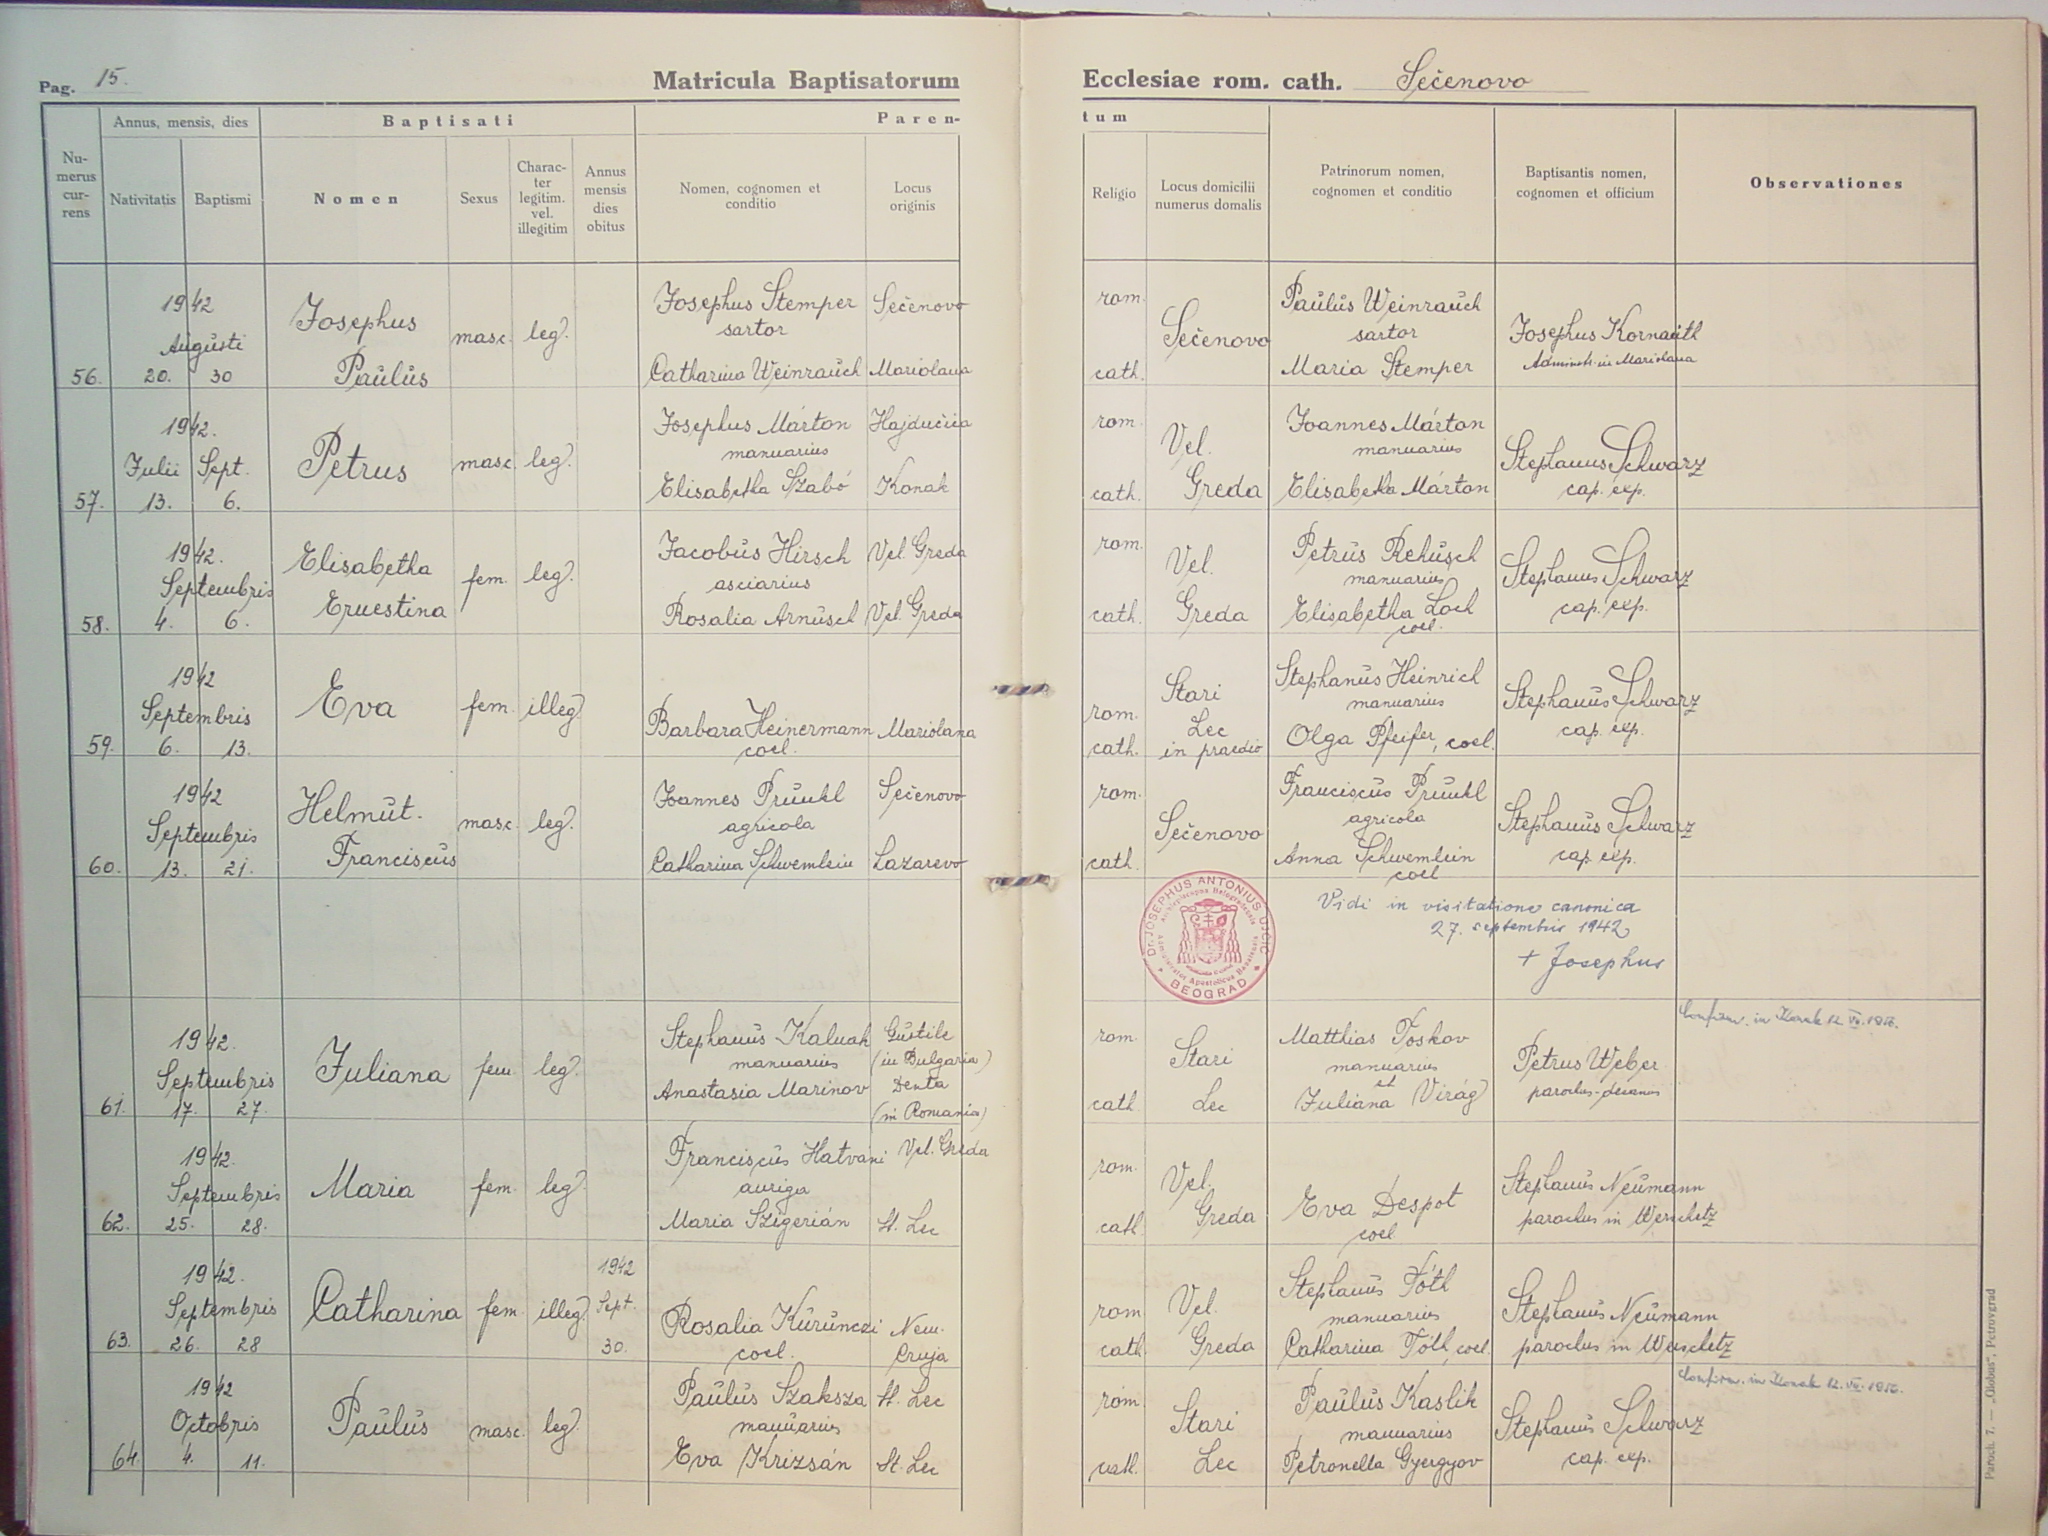 Pag. 15.
Matricula Baptisatorum
Ecclesiae rom. cath. Sečenovo
Numerus currens
Annus, mensis, dies
Nativitatis
Baptismi
Baptisati
Nomen
Sexus
Charac-
ter
legitim.
vel.
illegitim
Annus
mensis
dies
obitus
Paren-
tum
Nomen, cognomen et
conditio
Locus
originis
Religio
Locus domicilii
numerus domalis
Patrinorum nomen,
cognomen et conditio
Baptisantis nomen,
cognomen et officium
Observationes
1942 Josephus Stemper Sečenovo rom. Paulus Weinrauch
Augusti Josephus masc. leg. sartor Sečenovo sartor Josephus Kornauth
56. 20. 30 Paulus Catharina Weinrauch Mariolana cath. Maria Stemper Administr. in Mariolana
1942. Josephus Márton Hajdučica rom. Joannes Márton
Julii Sept. Petrus masc. leg. manuarius Vel. manuarius Stephanus Schwarz
57. 13. 6. Elisabetha Szabó Konak cath. Greda Elisabetha Márton cap. exp.
1942. Elisabetha Jacobus Hirsch Vel. Greda rom. Petrus Rehusch
Septembris fem. leg. asciarius Vel. manuarius Stephanus Schwarz
58. 4. 6. Ernestina Rosalia Arnusch Vel. Greda cath. Greda Elisabetha Loch cap. exp.
coel.
1942 Stari Stephanus Heinrich
Septembris Eva fem. illeg. rom. Lec manuarius Stephanus Schwarz
59. 6. 13. Barbara Heinermann Mariolana cath. in praedio Olga Pfeifer, coel. cap. exp.
coel.
1942 Helmut. Joannes Prunkl Sečenovo rom. Franciscus Prunkl
Septembris masc. leg. agricola Sečenovo agricola Stephanus Schwarz
60. 13. 21. Franciscus Catharina Schwemlein Lazarevo cath. Anna Schwemlein cap. exp.
coel
Dr. JOSEPHUS ANTONIUS UJČIĆ
BEOGRAD
Vidi in visitatione canonica
27. septembris 1942
+ Josephus
1942. Stephanus Kaluak Gustile rom. Matthias Toskov Confirm. in Konak 12. VII. 1956.
Septembris Juliana fem. leg. manuarius (in Bulgaria) Stari manuarius Petrus Weber
61. 17. 27. Anastasia Marinov Denta cath. Lec et Juliana Virág parochus-decanus
(in Romania)
1942. Franciscus Hatvani Vel. Greda rom. Stephanus Neumann
Septembris Maria fem. leg. auriga Vel. Eva Despot parochus in Werschetz
62. 25. 28. Maria Szigerián St. Lec cath. Greda coel
1942. 1942 Stephanus Tóth
Septembris Catharina fem. illeg. Sept. Rosalia Kurunczi rom. Vel. manuarius Stephanus Neumann
63. 26. 28 30. coel. cath. Greda Catharina Tóth, coel. parochus in Werschetz
1942 Paulus Szaksza St. Lec rom. Paulus Kaslik Confirm. in Konak 12. VII. 1956.
Octobris Paulus masc. leg. manuarius Stari manuarius Stephanus Schwarz
64. 4. 11. Eva Krizsán St. Lec cath. Lec Petronella Gyergyov cap. exp.
Paroch. 7. — „Globus", Petrovgrad